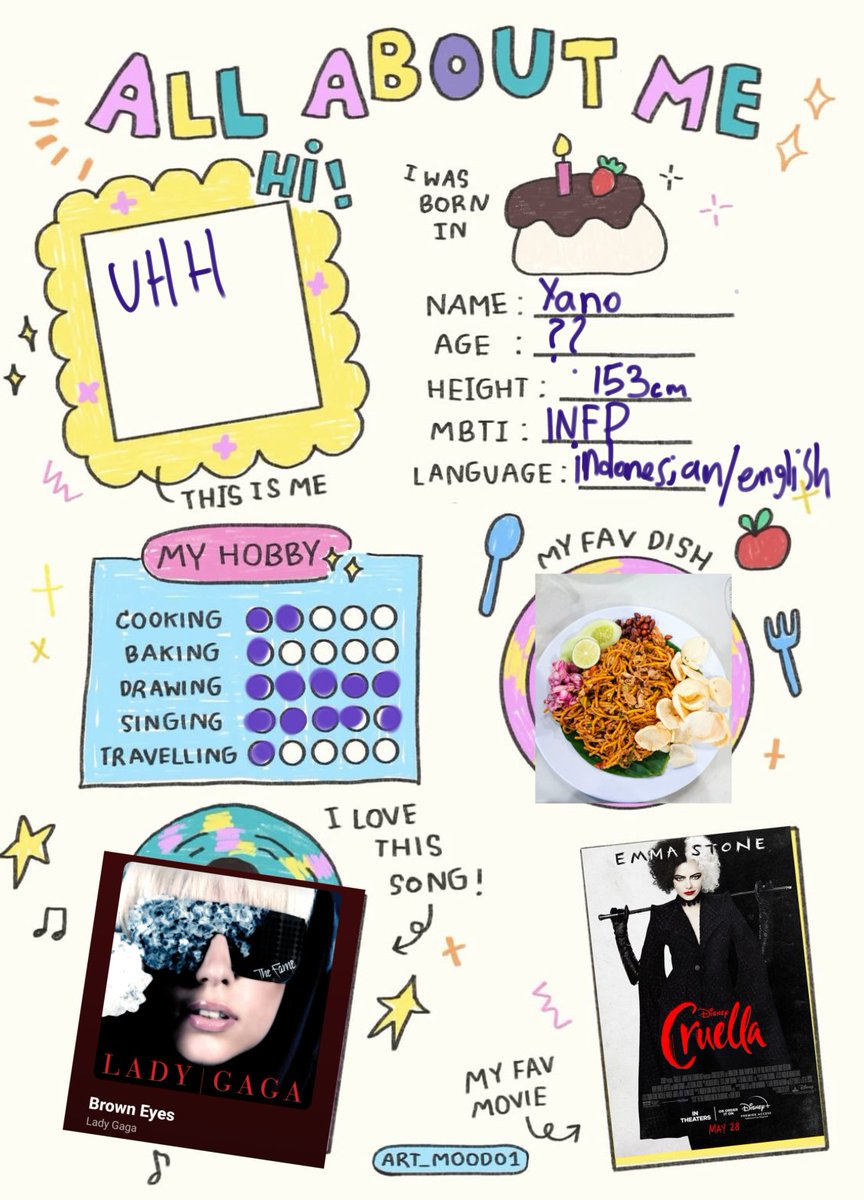 ALL ABOUT ME
Hi!
UHH
THIS IS ME
I WAS
BORN
IN
NAME: Yano
AGE : ??
HEIGHT: 153cm
MBTI: INFP
LANGUAGE: indonesian/english
MY HOBBY
COOKING
BAKING
DRAWING
SINGING
TRAVELLING
MY FAV DISH
I LOVE
THIS
SONG!
The Fame
LADY GAGA
Brown Eyes
Lady Gaga
MY FAV
MOVIE
EMMA STONE
Disney
Cruella
IN
THEATERS
OR ORDER
IT ON
Disney+
PREMIER ACCESS
MAY 28
ART_MOOD01